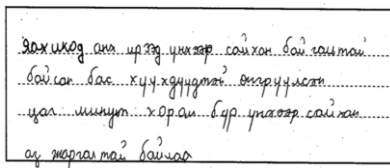 анх ирээд үнэхээр сайхан байгалтай
байсан бас хүүхдүүдтэй өнгрүүлсэн
цаг минут хором бүр үнэхээр сайхан
аз жаргалтай байлаа